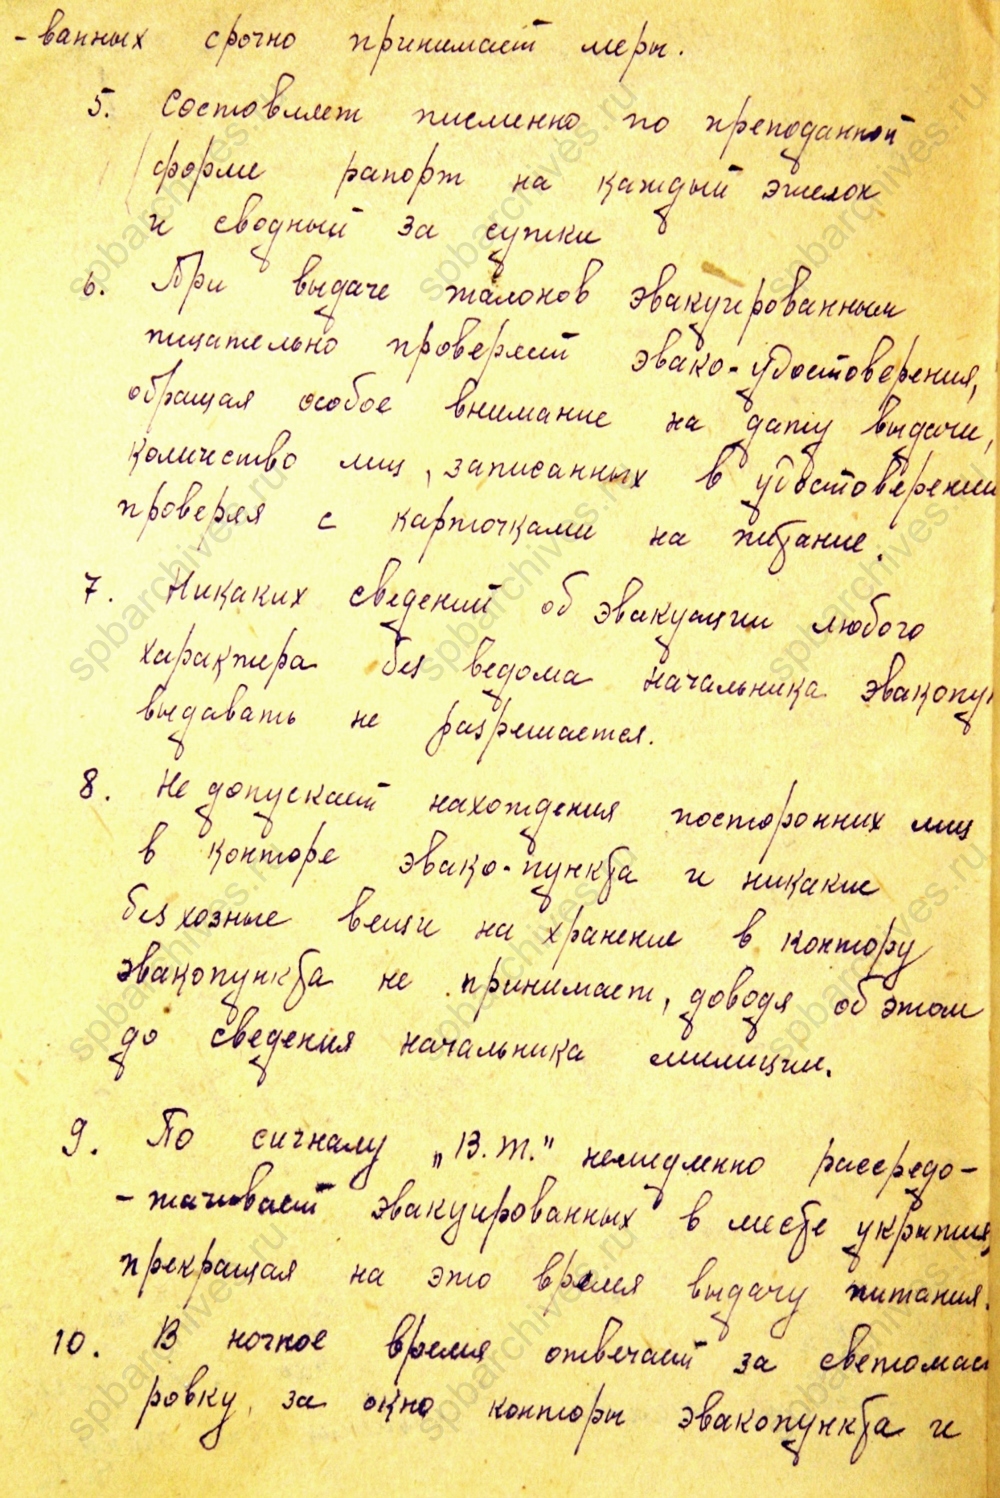 -ванных срочно принимает меры.
5. Составляет писменно по преподанной
форме рапорт на каждый эшелон
и сводный за сутки
6. При выдаче талонов эвакуированным
тщательно проверяет эвако-удостоверения,
обращая особое внимание на дату выдачи,
количество лиц, записанных в удостоверении
проверяя с карточками на питание.
7. Никаких сведений об эвакуации любого
характера без ведома начальника эвакопун
выдавать не разрешается.
8. Не допускает нахождения посторонних лиц
в конторе эвако-пункта и никакие
безхозные вещи на хранение в контору
эвакопункта не принимает, доводя об этом
до сведения начальника милиции.
9. По сигналу „В.Т." немедленно рассредо-
-тачивает эвакуированных в месте укрытия,
прекращая на это время выдачу питания.
10. В ночное время отвечает за светомас
ровку, за окно конторы эвакопункта и
spbarchives.ru